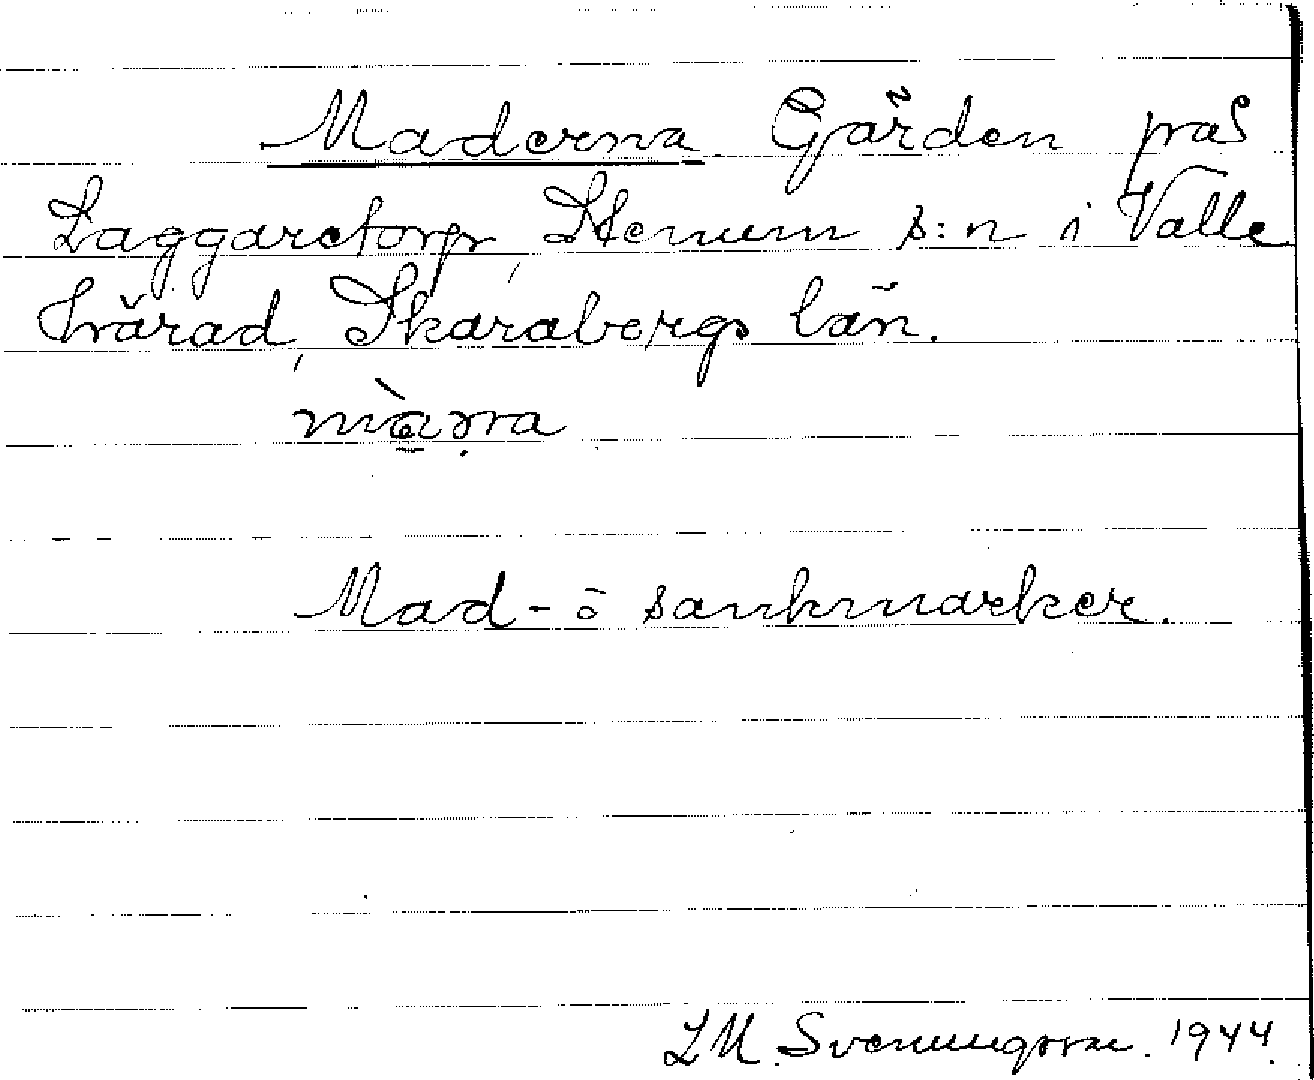 Maderna Gärden på
Laggaretorp, Stenum s:n i Valle
härad, Skarabergs län.
Mad- o sankmarker.
L M. Svenungsson. 1944.